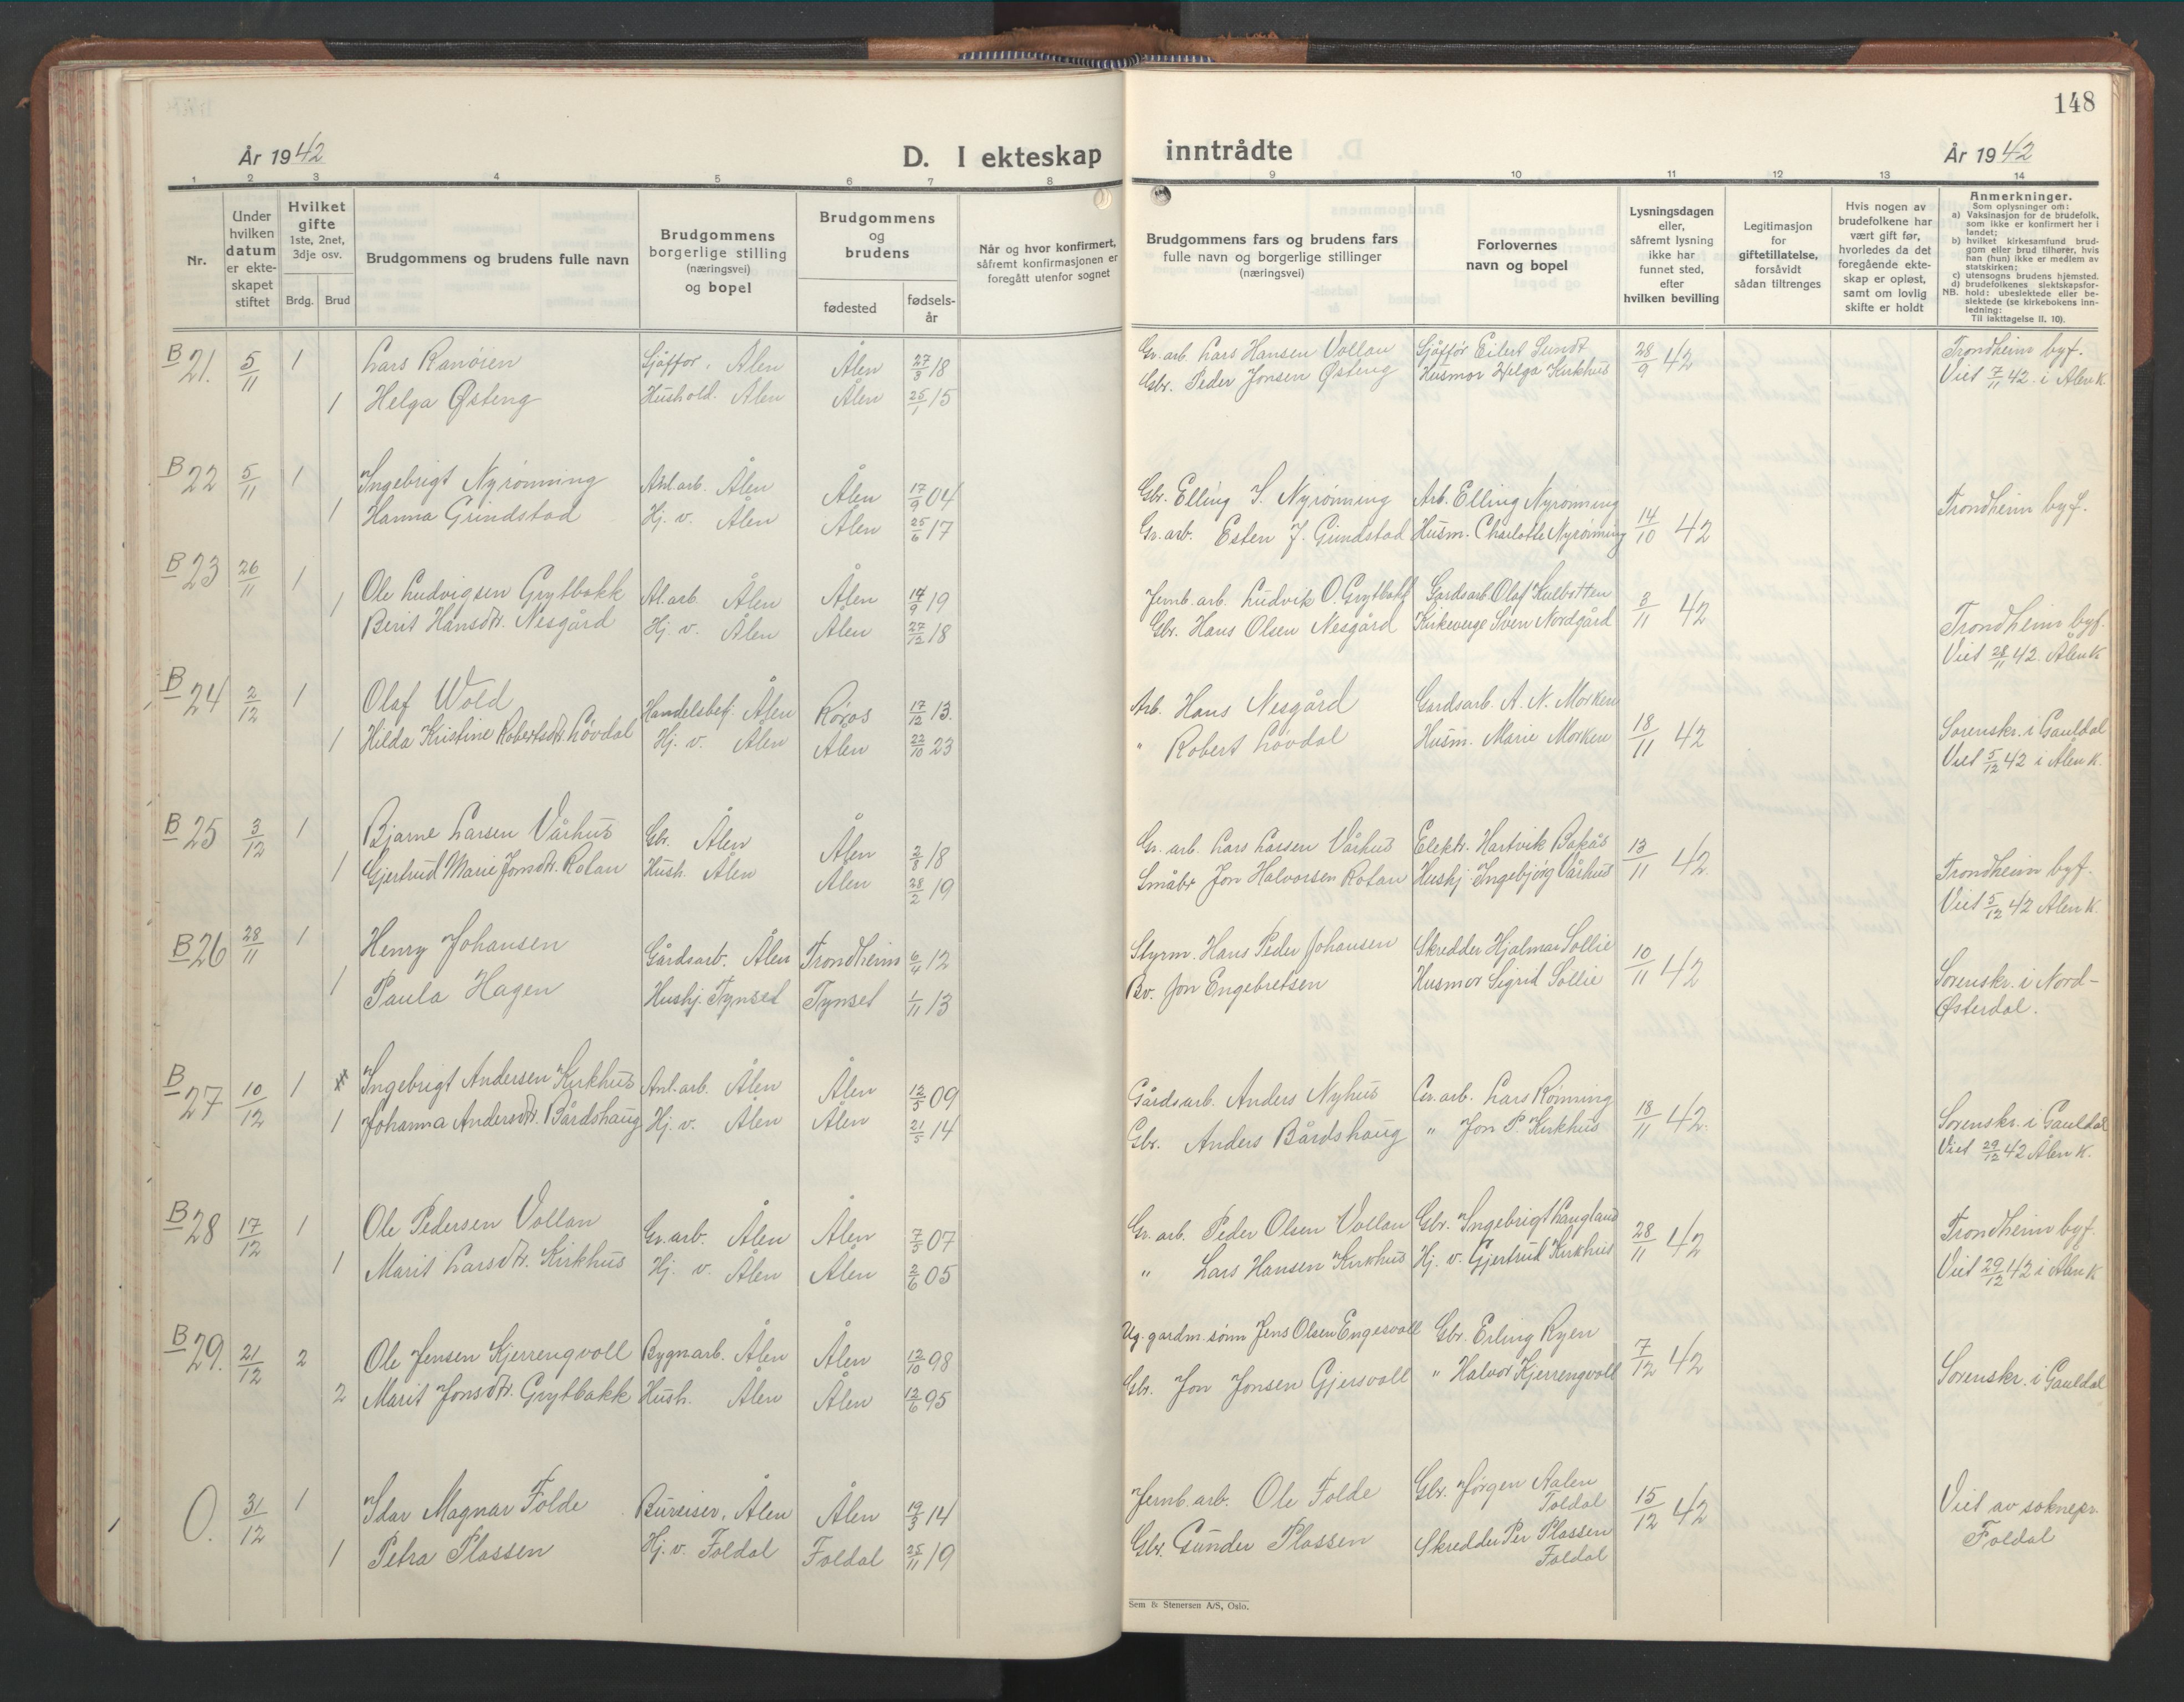 148
År 1942
D. I ekteskap inntrådte
År 1942
1 2 3 4 5 6 7 8 9 10 11 12 13 14
Nr.
Under hvilken datum er ekte-skapet stiftet
Hvilket gifte
1ste, 2net, 3dje osv.
Brdg. Brud
Brudgommens og brudens fulle navn
Brudgommens borgerlige stilling (næringsvei) og bopel
Brudgommens og brudens
fødested
fødsels-år
Når og hvor konfirmert, såfremt konfirmasjonen er foregått utenfor sognet
Brudgommens fars og brudens fars fulle navn og borgerlige stillinger (næringsvei)
Forlovernes navn og bopel
Lysningsdagen eller, såfremt lysning ikke har funnet sted, efter hvilken bevilling
Legitimasjon for giftetillatelse, forsåvidt sådan tiltrenges
Hvis nogen av brudefolkene har vært gift før, hvorledes da det foregående ekte-skap er opløst, samt om lovlig skifte er holdt
Anmerkninger.
Som oplysninger om:
a) Vaksinasjon for de brudefolk, som ikke er konfirmert her i landet;
b) hvilket kirkesamfund brud-gom eller brud tilhører, hvis han (hun) ikke er medlem av statskirken;
c) utensogns brudens hjemsted.
d) brudefolkenes slektskapsfor-hold: ubeslektede eller be-slektede (se kirkebokens inn-ledning:
NB. Til iakttagelse II, 10).
B 21. 5/11 1 Lars Ranöien Sjåffør, Ålen Ålen 27/3 18 Gr. arb. Lars Hansen Vollan Sjåffør Eilert Sundt 28/9 42 Trondheim byf.
1 Helga Østeng Hushold. Ålen Ålen 25/1 15 Gbr. Peder Jonsen Østeng Husmor Helga Kirkhus Viet 7/11 42. i Ålen k.
B 22 5/11 1 Ingebrigt Nyrönning Anl. arb. Ålen Ålen 17/9 04 Gbr. Elling I. Nyrönning Arb. Elling Nyrönning Trondheim byf.
1 Hanna Grindstad Hj. v. Ålen Ålen 25/6 17 Gr. arb. Esten J. Gründstad Husm. Charlotte Nyrönning 14/10 42
B 23 26/11 1 Ole Ludvigsen Grytbakk Al. arb. Ålen Ålen 14/9 19 Jernb. arb. Ludvik O. Grytbakk Gardsarb. Olaf Kulbotten 3/11 42 Trondheim byf.
1 Berit Hansdtr. Nesgård Hj. v. Ålen Ålen 27/12 18 Gbr. Hans Olsen Nesgård Kirkeverge Sven Nordgård Viet 28/11 42. Ålen k
B 24 2/12 1 Olaf Wold Handelsbetj. Ålen Røros 17/12 13. Arb. Hans Nesgård Gardsarb. A. N. Morken 18/11 42 Sorenskr. i Gauldal
1 Hilda Kristine Robertsdtr. Lövdal Hj. v. Ålen Ålen 22/10 23 " Robert Lövdal Husm. Marie Morken Viet 5/12 42 i Ålen k.
B 25 3/12 1 Bjarne Larsen Vårhus Gbr. Ålen Ålen 2/8 18 Gr. arb. Lars Larsen Vårhus Elektr. Hartvik Bakås 13/11 42. Trondheim byf.
1 Gjertrud Marie Jonsdtr. Rotan Hush. Ålen Ålen 28/2 19 Småbr Jon Halvorsen Rotan Hushj. Ingebjörg Vårhus Viet 5/12 42 Ålen k.
B 26 28/11 1 Henry Johansen Gårdsarb. Ålen Trondheim 6/4 12 Styrm. Hans Peder Johansen Skredder Hjalmar Sollie 10/11 42 Sorenskr. i Nord-
1 Paula Hagen Hushj. Tynset Tynset 1/11 13 Bv. Jon Engebretsen Husmor Sigrid Sollie Østerdal.
B 27 10/12 1 Ingebrigt Andersen Kirkhus Anl. arb. Ålen Ålen 12/5 09 Gårdsarb. Anders Nyhus Gr. arb. Lars Rönning 18/11 42. Sorenskr. i Gauldal
1 Johanna Andersdtr. Bårdshaug Hj. v. Ålen Ålen 21/5 14 Gbr. Anders Bårdshaug " Jon P. Kirkhus Viet 29/12 42 Ålen k.
B 28 17/12 1 Ole Pedersen Vollan Gr. arb. Ålen Ålen 7/5 07 Gr. arb. Peder Olsen Vollan Gbr. Ingebrigt Laugland 28/11 42 Trondheim byf.
1 Marit Larsdtr. Kirkhus Hj. v. Ålen Ålen 2/6 05 " Lars Hansen Kirkhus Hj. v. Gjertrud Kirkhus Viet 29/12 42 i Ålen k
B 29. 21/12 2 Ole Jensen Kjerrengvoll Bygn. arb. Ålen Ålen 12/10 98 Ug. gardm. sønn Jens Olsen Engesvoll Gbr. Erling Ryen 7/12 42 Sorenskr. i Gauldal
2 Marit Jonsdtr. Grytbakk Hush. Ålen Ålen 12/6 95 Gbr. Jon Jonsen Gjersvoll " Halvor Kjerrengvoll
O. 31/12 1 Idar Magnar Folde Bureiser, Ålen Ålen 19/3 14 Jernb. arb. Ole Folde Gbr. Jørgen Aalen Foldal 15/12 42 Viet av soknepr.
1 Petra Plassen Hj. v. Foldal Foldal 25/11 19 Gbr. Gunder Plassen Skredder Per Plassen Foldal Foldal
Sem & Stenersen A/S, Oslo.